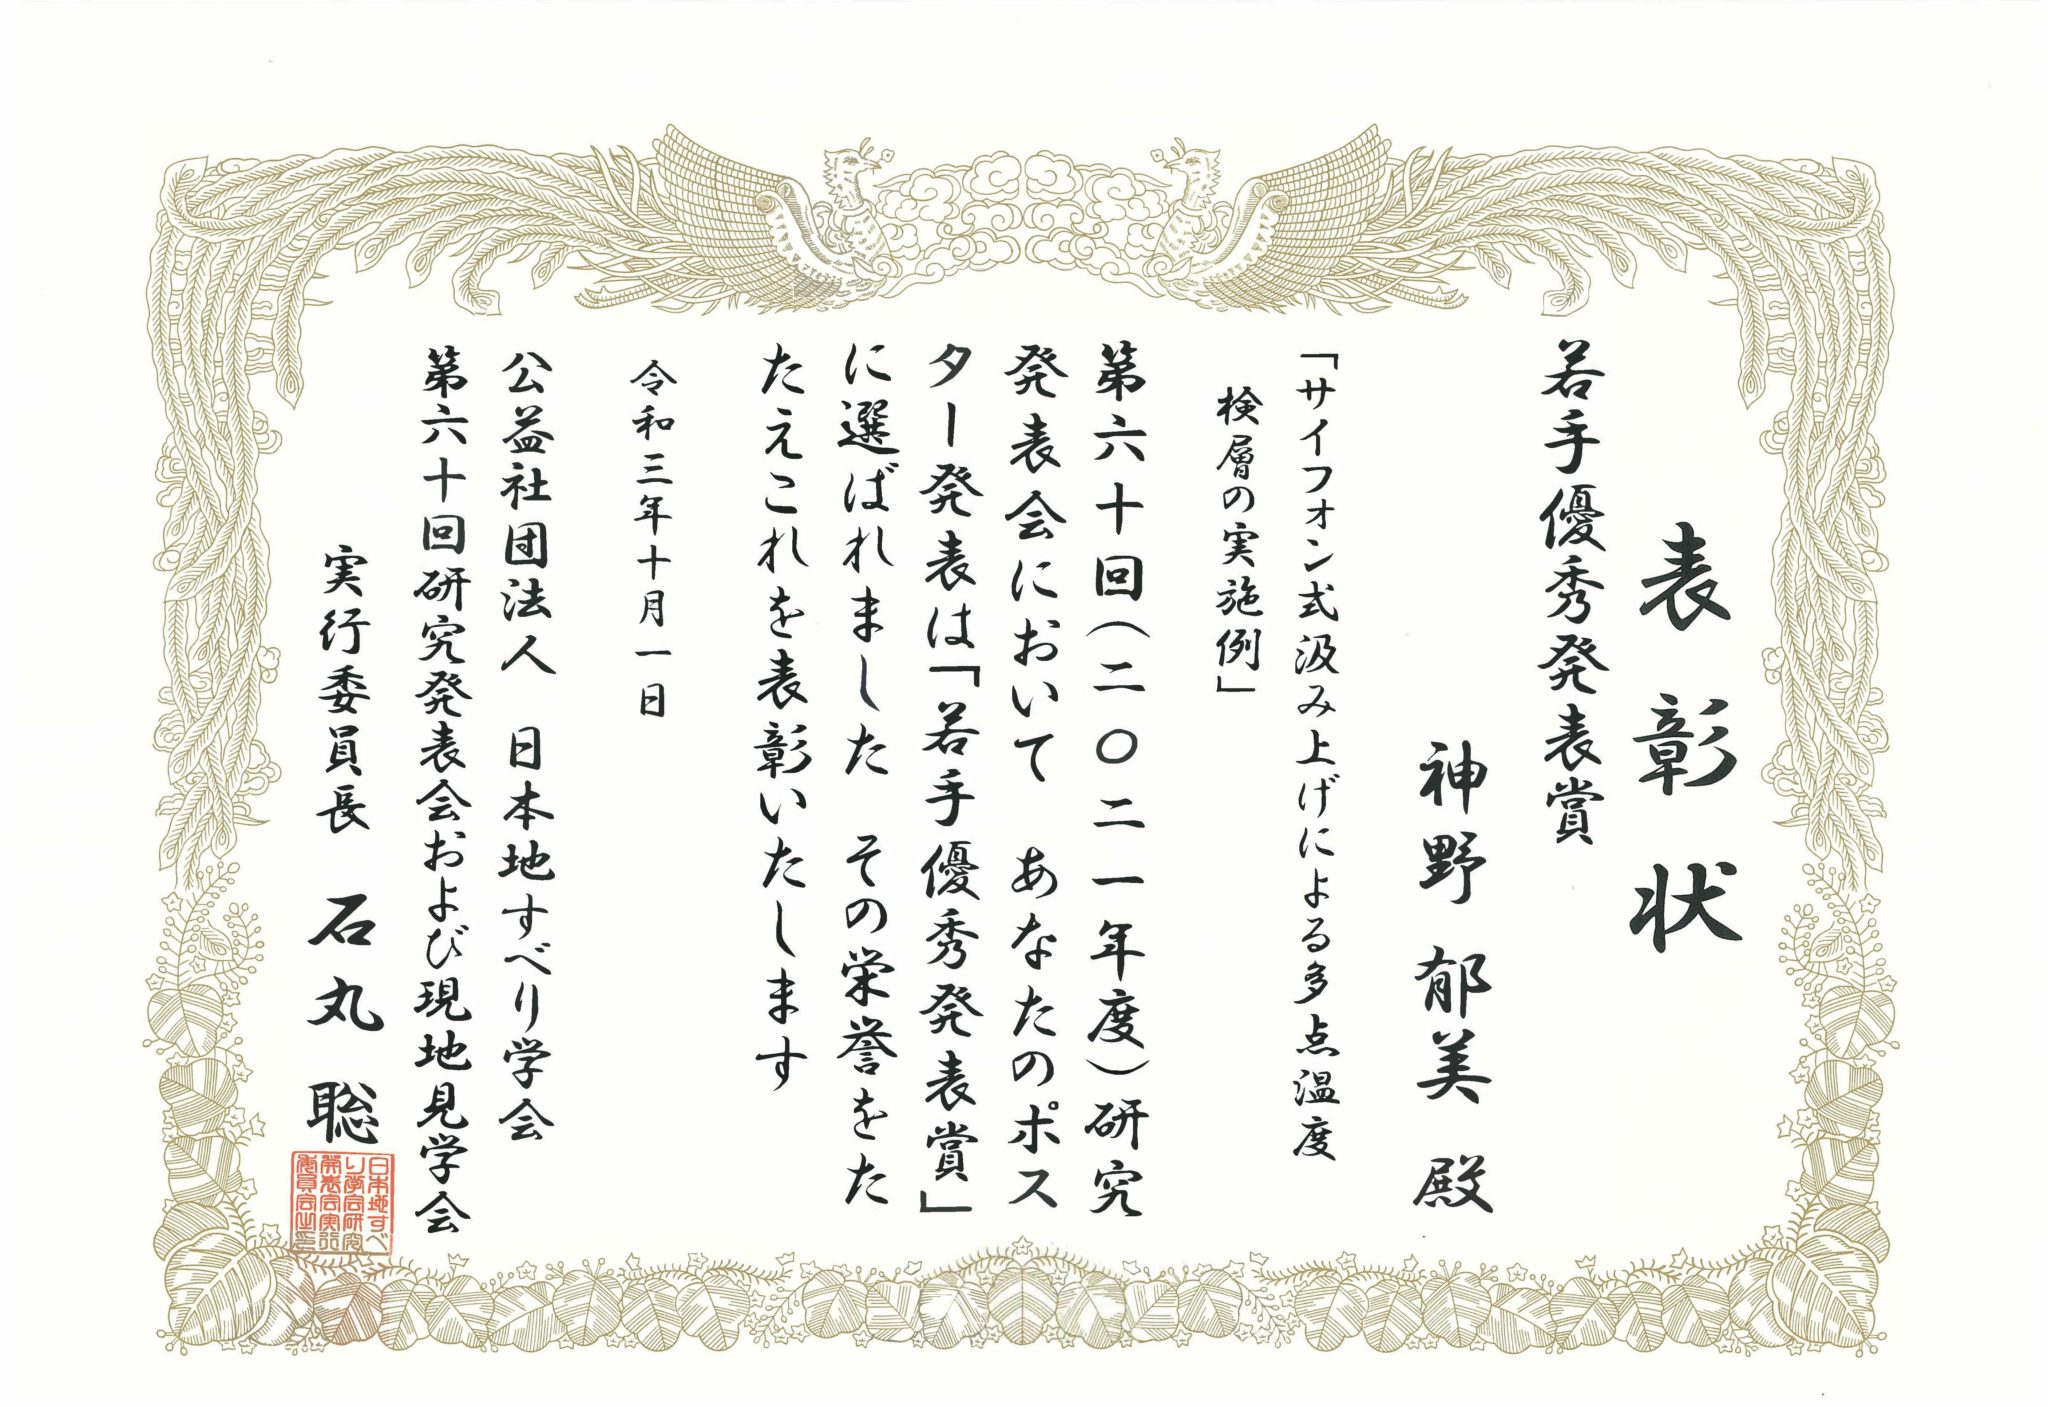 表彰状
若手優秀発表賞
神野 郁美 殿
「サイフォン式汲み上げによる多点温度
検層の実施例」
第六十回(二〇二一年度)研究
発表会において あなたのポス
ター発表は「若手優秀発表賞」
に選ばれました その栄誉をた
たえこれを表彰いたします
令和三年十月一日
公益社団法人 日本地すべり学会
第六十回研究発表会および現地見学会
実行委員長 石丸 聡
日本地すべ
り学会研究
発表会実行
委員会之印